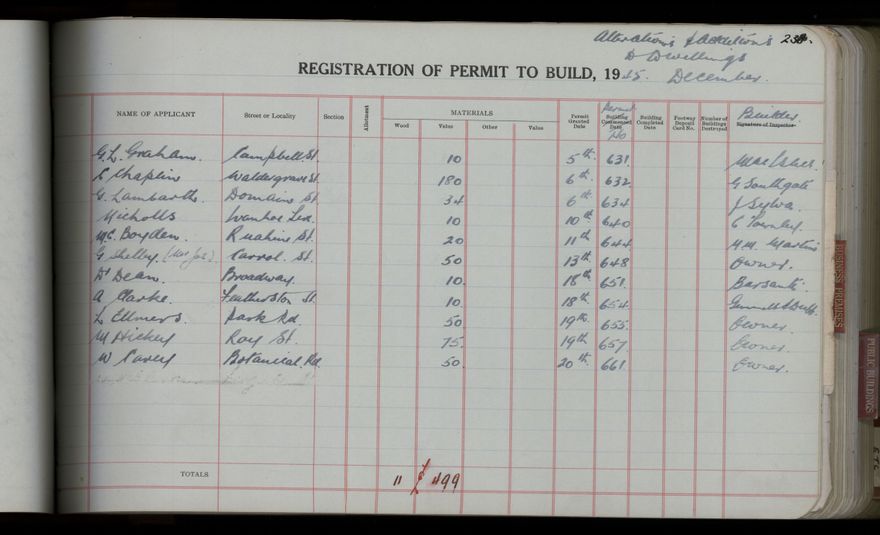 Alterations & Additions 238.
to Dwellings
REGISTRATION OF PERMIT TO BUILD, 1945. December.
NAME OF APPLICANT Street or Locality Section Allotment MATERIALS Permit Granted Date Permit Building Commenced Date No Building Completed Date Footway Deposit Card No. Number of Buildings Destroyed Builder Signature of Inspector
Wood Value Other Value
G.L. Graham. Campbell St. 10 5th. 631.
E Chaplin Waldegrave St. 180 6th. 632. G Southgate
G. Lambarth. Domain St. 34 6th. 634 J Sylva.
Nicholls Ivanhoe 10 10th 640 C Townley
M.C. Boyden. Ruahine St. 20 11th 644 H.M. Martin
G Shelby. (Mrs Jas.) Carrol. St. 50 13th 648 Owner.
Dr Dean. Broadway. 10. 18th 651. Barsanti.
A Clarke. Featherston St. 10. 18th 654.
L Ellmers. Park Rd. 50. 19th. 655. Owner.
M Hickey Roy St. 75. 19th 657 Owner.
W Pavey Botanical. Rd. 50. 20th. 661. Owner.
TOTALS 11 £ 499
BUSINESS PREMISES
PUBLIC BUILDINGS
ETC